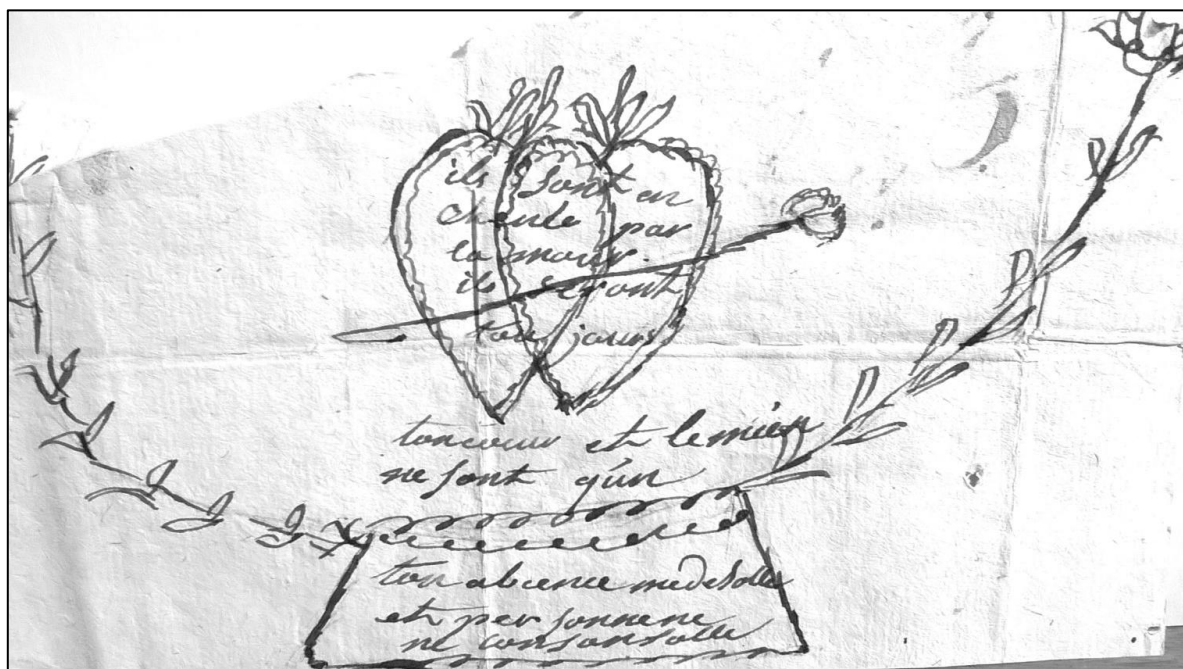 ils sont en
chenle par
la mour.
ils seront
tou jours
ton coeur et le mien
ne sont q'un
ton abcence me desolle
et per sonne ne
ne consansolle